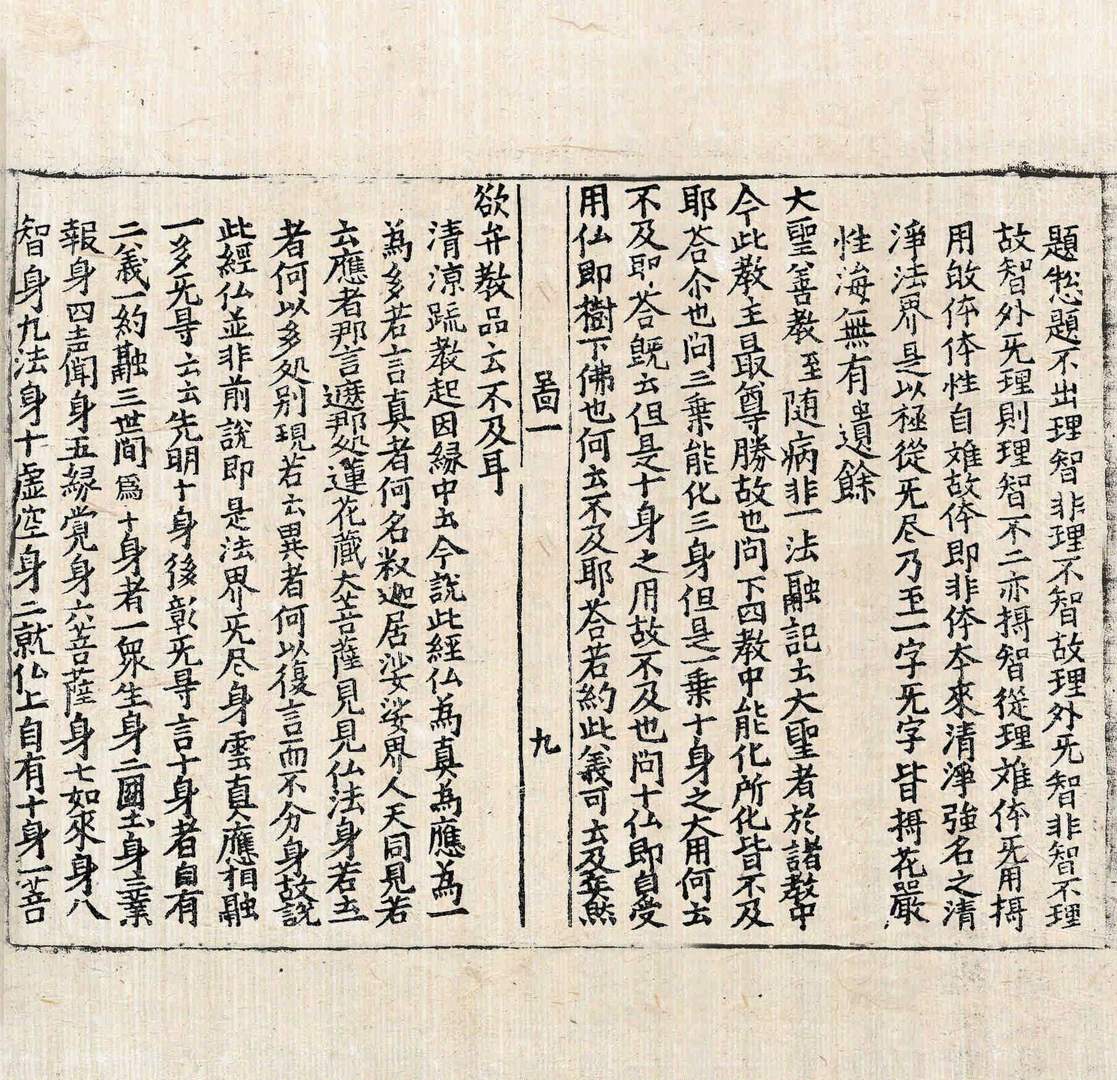 題惣題不出理智非理不智故理外旡智非智不理
故智外旡理則理智不二亦揭智從理难体旡用揭
用故体体性自难故体即非体夲來清淨強名之清
淨法界是以極從旡尽乃至一字旡字皆揭花嚴
性海無有遺餘
大聖善教至随病非一法融記云大聖者於諸教中
今此教主最尊勝故也問下四教中能化所化皆不及
耶荅尒也問三乗能化三身但是一乗十身之大用何云
不及耶荅旣云但是十身之用故不及也問十仏即自受
用仏即樹下佛也何云不及耶荅若約此義可云及矣然
圖一
九
欲弁教品云不及耳
清涼䟽教起因縁中云今說此經仏為真為應為一
為多若言真者何名釈迦居娑婆界人天同見若
云應者那言遮那処蓮花藏大菩薩見見仏法身若云一
者何以多処别現若云異者何以復言而不分身故說
此經仏並非前說即是法界旡尽身雲真應相融
一多旡㝵云云先明十身後彰旡㝵言十身者自有
二義一約融三世間爲十身者一衆生身二國土身三業
報身四声聞身五縁覺身六菩薩身七如來身八
智身九法身十虛空身二就仏上自有十身一菩